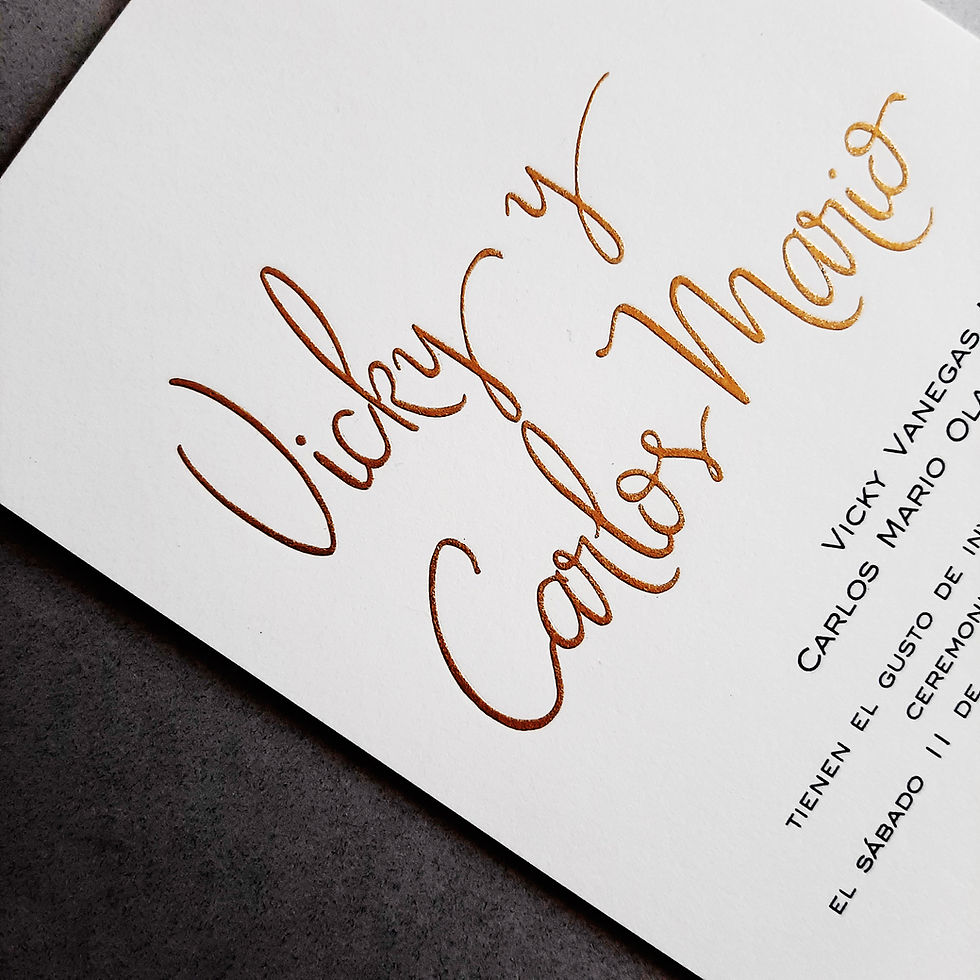 Vicky y
Carlos Mario
VICKY VANEGAS
CARLOS MARIO
TIENEN EL GUSTO DE
CEREMONI
EL SÁBADO 11 DE